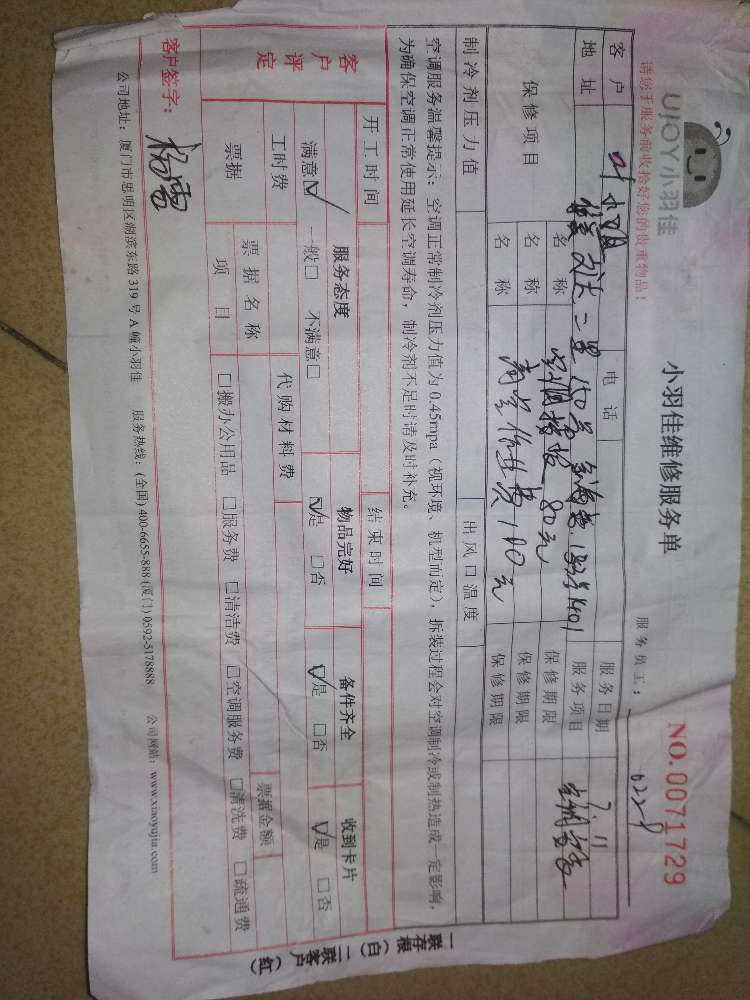 UJOY小羽佳
小羽佳维修服务单
NO.0071729
请您于服务前收拾好您的贵重物品！
服务员工：
客户 叶小姐 电话 服务日期 7.11
地址 二里150号 1401 服务项目 空调
保修项目 名称 空调 80元 保修期限
名称 高空作业费100元 保修期限
名称 保修期限
制冷剂压力值 出风口温度
空调服务温馨提示：空调正常制冷剂压力值为0.45mpa（视环境、机型而定），拆装过程会对空调制冷或制热造成一定影响，
为确保空调正常使用延长空调寿命，制冷剂不足时请及时补充。
开工时间 结束时间
客户评定 服务态度 物品完好 备件齐全 收到卡片
满意☑ 一般□ 不满意□ ☑是 □否 ☑是 □否 ☑是 □否
工时费 代购材料费
票据 票据名称 票据金额
项目 □搬办公用品 □服务费 □清洁费 □空调服务费 □清洗费 □疏通费
客户签字： 杨雷
公司地址：厦门市思明区湖滨东路319号A幢小羽佳 服务热线：(全国)400-6655-888 (厦门)0592-5178888 公司网站：www.xiaoyujia.com
一联存根（白）二联客户（红）